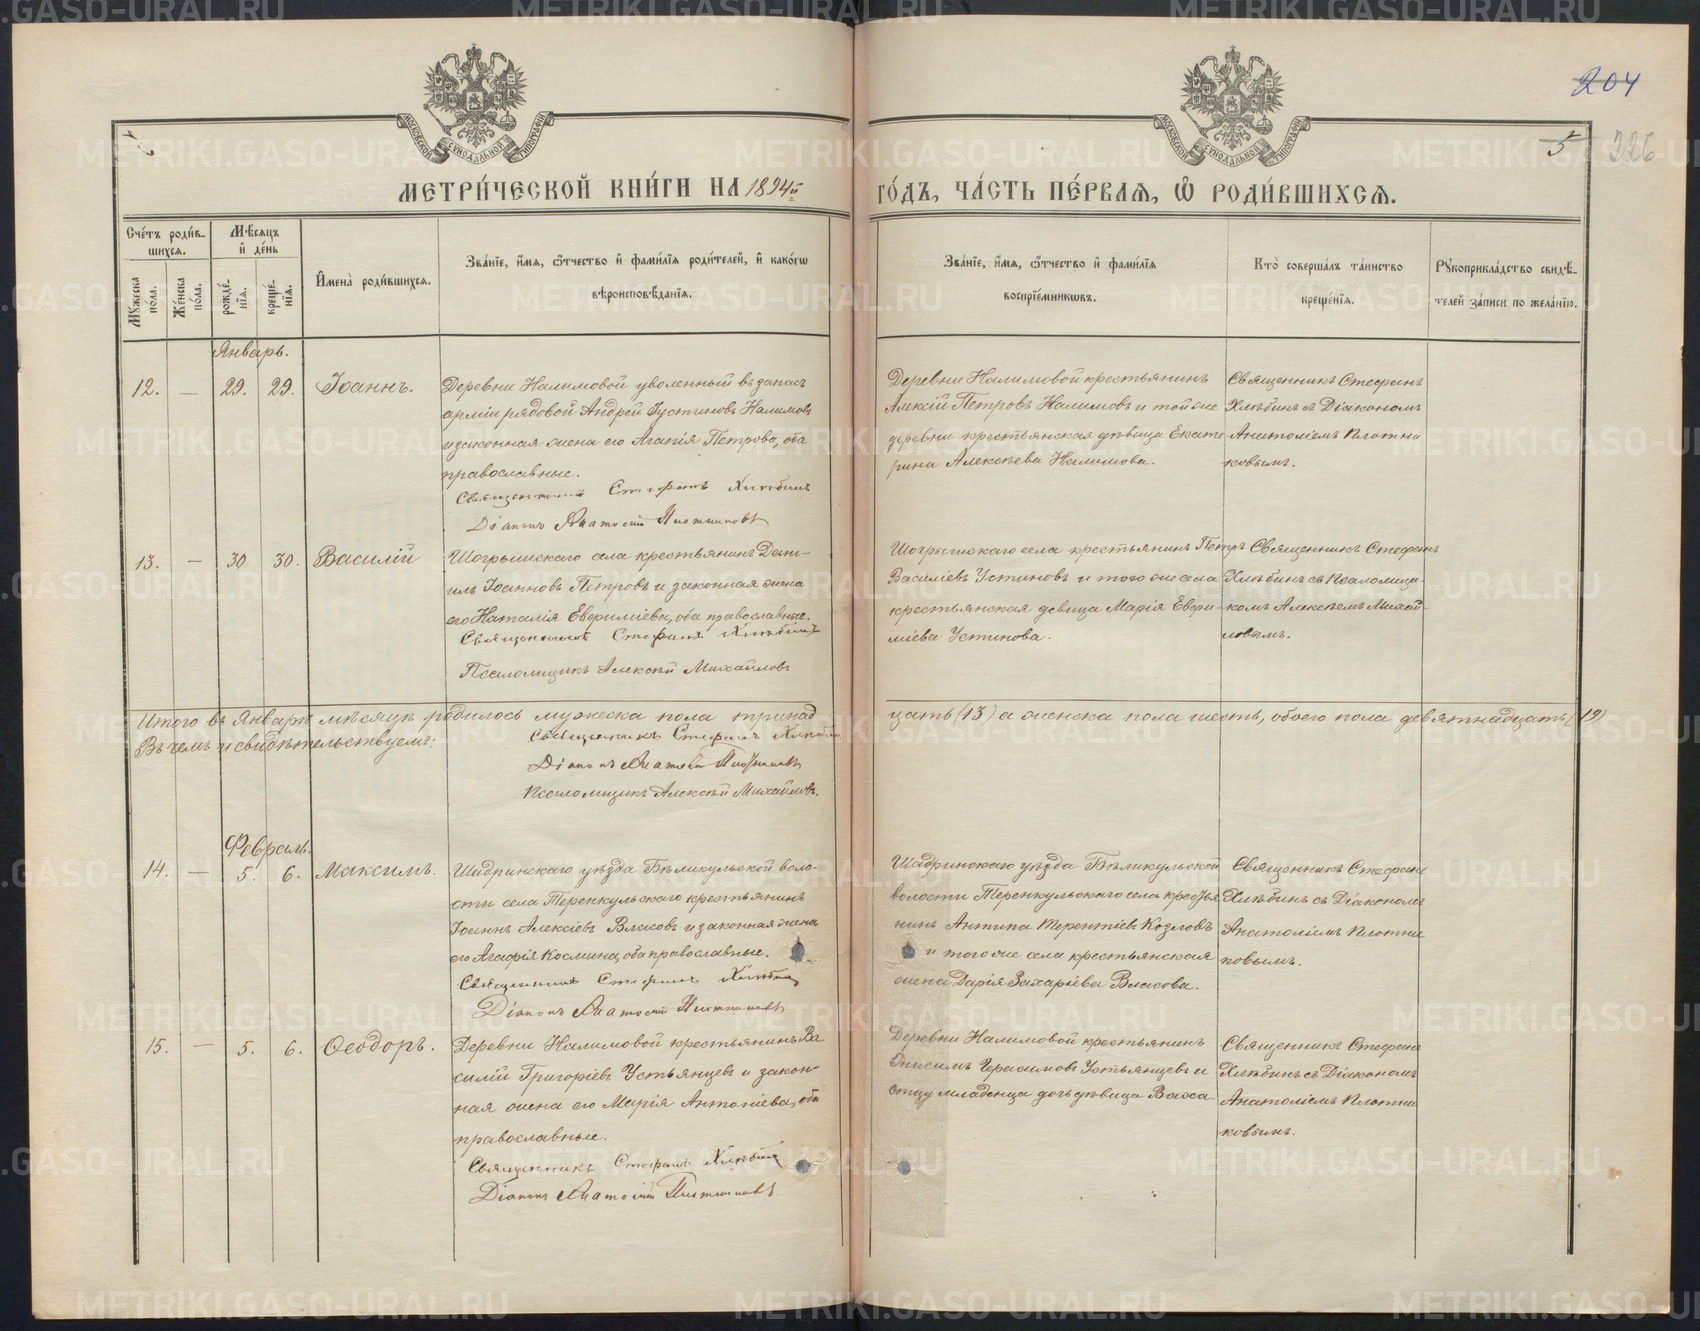 204
5
326
МОСКОВСКОЙ СУНОДАЛЬНОЙ ТИПОГРАФІИ
МОСКОВСКОЙ СУНОДАЛЬНОЙ ТИПОГРАФІИ
МЕТРИ́ЧЕСКОЙ КНИ́ГИ НА 1894й
ГО́ДЪ, ЧА́СТЬ ПЕ́РВАѦ, Ѡ҆ РОДИ́ВШИХСѦ.
Сче́тъ роди́в-
шихсѧ.
Мꙋжеска по́ла.
Же́нска по́ла.
Мѣ́сѧцъ
и҆ де́нь
рожде́-
нїѧ.
креще́-
нїѧ.
И҆мена̀ роди́вшихсѧ.
Зва́нїе, и҆́мѧ, ѻ҆́тчество и҆ фами́лїѧ роди́телей, и҆ како́гѡ
вѣроисповѣ́данїѧ.
Зва́нїе, и҆́мѧ, ѻ҆́тчество и҆ фами́лїѧ
воспрїе́мникѡвъ.
Кто̀ соверша́лъ та́инство
креще́нїѧ.
Рꙋкоприкла́дство свидѣ́-
телей за́писи по жела́нїю.
Январь.
12. — 29. 29. Іоаннъ.
Деревни Налимовой уволенный въ запасъ
арміи рядовой Андрей Іустиновъ Налимовъ
и законная жена его Агапія Петрова, оба
православные.
Священникъ Стефанъ Хлѣбинъ
Діаконъ Анатолій Плотниковъ
Деревни Налимовой крестьянинъ
Алексій Петровъ Налимовъ и той же
деревни крестьянская дѣвица Екате
рина Алексѣева Налимова.
Священникъ Стефанъ
Хлѣбинъ съ Діакономъ
Анатоліемъ Плотни
ковымъ.
13. — 30 30. Василій
Шогрышскаго села крестьянинъ Дани-
илъ Іоанновъ Петровъ и законная жена
его Наталія Евфиміева, оба православные.
Священникъ Стефанъ Хлѣбинъ
Псаломщикъ Алексѣй Михайловъ
Шогрышскаго села крестьянинъ Петръ
Василіевъ Устиновъ и того же села
крестьянская девица Марія Евфи-
міева Устинова.
Священникъ Стефанъ
Хлѣбинъ съ Псаломщи-
комъ Алексѣемъ Михай-
ловымъ.
Итого въ Январѣ мѣсяцѣ родилось мужеска пола тринад
цать (13) а женска пола шесть, обоего пола девятнадцать (19)
Въ чемъ и свидѣтельствуемъ:
Священникъ Стефанъ Хлѣбинъ
Діаконъ Анатолій Плотниковъ
Псаломщикъ Алексѣй Михайловъ.
Февраль.
14. — 5. 6. Максимъ.
Шадринскаго уѣзда Бѣликульской воло-
сти села Теренкульскаго крестьянинъ
Іоаннъ Алексіевъ Власовъ и законная жена
его Агафія Космина, оба православные.
Священникъ Стефанъ Хлѣбинъ
Діаконъ Анатолій Плотниковъ
Шадринскаго уѣзда Бѣликульской
волости Теренкульскаго села крестья
нинъ Антипа Терентіевъ Козловъ
и того же села крестьянская
жена Дарія Захаріева Власова.
Священникъ Стефанъ
Хлѣбинъ съ Діакономъ
Анатоліемъ Плотни
ковымъ.
15. — 5. 6. Ѳеодоръ.
Деревни Налимовой крестьянинъ Ва-
силій Григоріевъ Устьянцевъ и закон-
ная жена его Марія Антоніева, оба
православные.
Священникъ Стефанъ Хлѣбинъ
Діаконъ Анатолій Плотниковъ
Деревни Налимовой крестьянинъ
Онисимъ Герасимовъ Устьянцевъ и
отцу младенца дочь дѣвица Васса.
Священникъ Стефанъ
Хлѣбинъ съ Діакономъ
Анатоліемъ Плотни
ковымъ.
METRIKI.GASO-URAL.RU